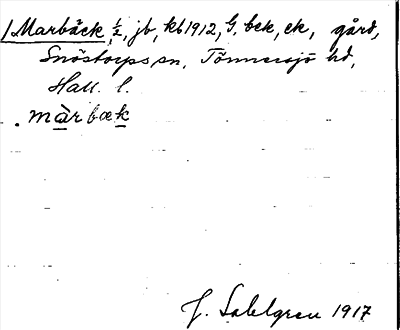 /Marbäck, ½, jb, kb 1912, G. bek, ek, gård,
Snöstorps sn, Tönnersjö hd,
Hall. l.
. màrbæk
J. Sahlgren 1917